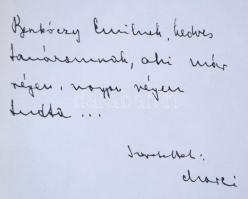 Renkóczy Emilnek, kedves
tanáromnak, aki már
régen, nagyon régen
tudta ...
Szeretettel:
Marci